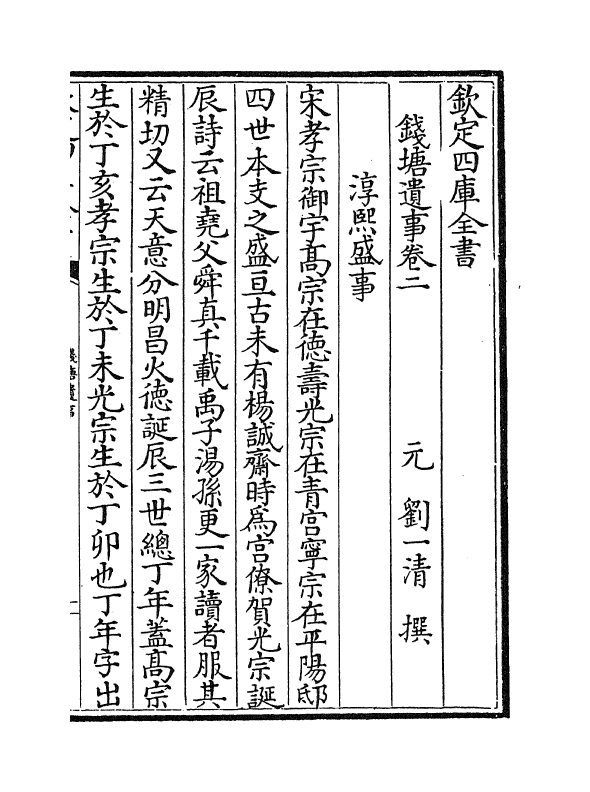 欽定四庫全書
錢塘遺事卷二
元 劉一清 撰
淳熙盛事
宋孝宗御宇髙宗在徳壽光宗在青宫寧宗在平陽邸
四世本支之盛亘古未有楊誠齋時為宫僚賀光宗誕
辰詩云祖堯父舜真千載禹子湯孫更一家讀者服其
精切又云天意分明昌火徳誕辰三世總丁年蓋髙宗
生於丁亥孝宗生於丁未光宗生於丁卯也丁年字出
錢塘遺事